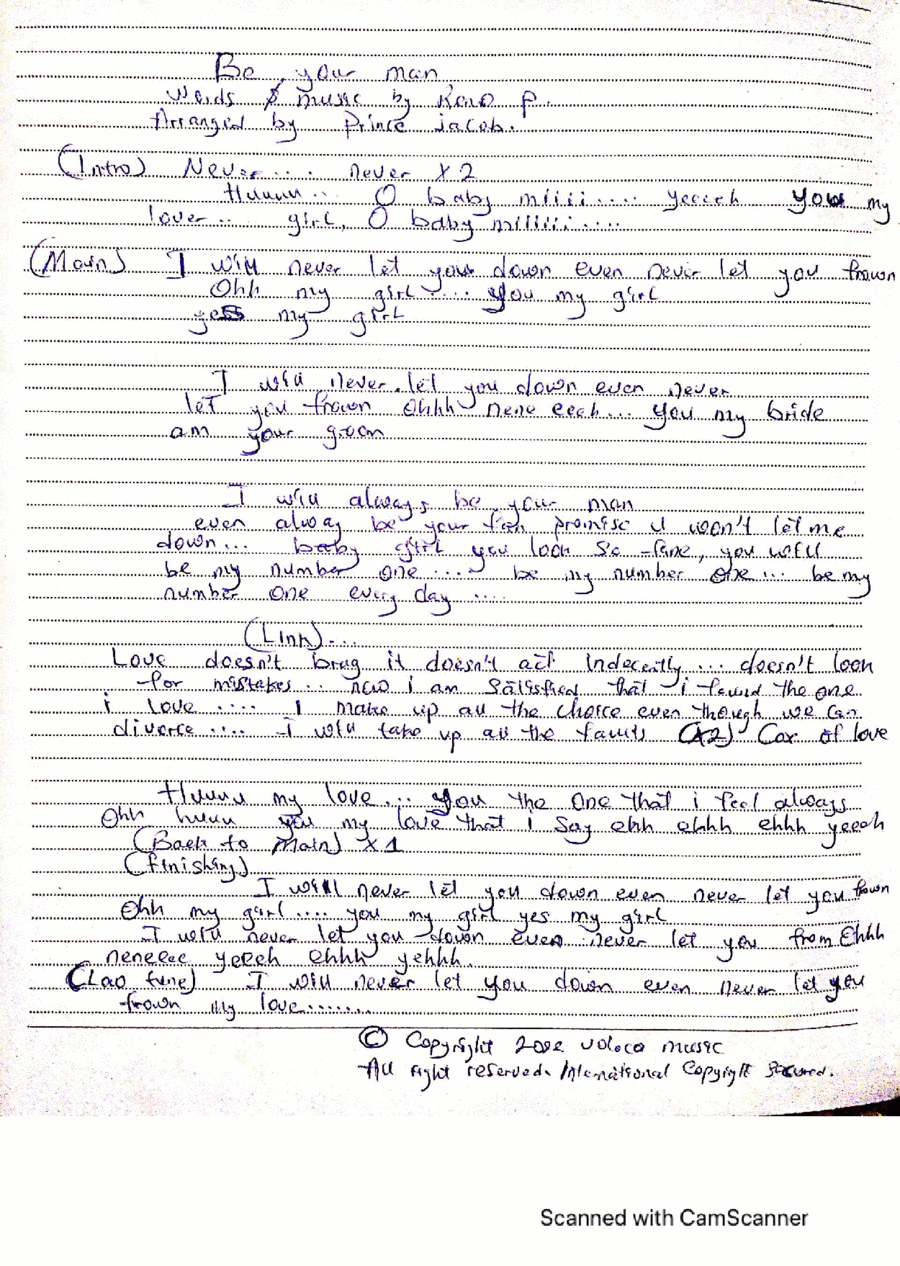 Be your man
Words & music by Keno P.
Arranged by Prince jacob.
(Intro) Never.... never x 2
Huuuu... O baby miiii.... yeeeeh you my
lover... girl, O baby miiiiii....
(Main) I will never let you down even never let you frown
Ohh my girl.... you my girl
yes my girl
I will never let you down even never
let you frown Ohhh nene eeeh... you my bride
am your groom
I will always be your man
even alway be your fan promise u won't let me
down... baby girl you look so fine, you will
be my number one.... be my number one... be my
number one every day....
(Link)...
Love doesn't brag it doesn't act indecently... doesn't look
for mistakes.. now i am satisfied that i found the one
i love.... I make up all the choice even though we can
divorce.... I will take up all the faults (x2) Coz of love
Huuuu my love... you the one that i feel always
Ohh huuu you my love that i say ehh ehhh ehhh yeeeh
(Back to main) x 1
(finishing)
I will never let you down even never let you frown
Ohh my girl.... you my girl yes my girl
I will never let you down even never let you from Ehhh
neneeee yeeeh ehhh yehhh.
I will never let you down even never let you
frown my love.......
© Copyright 2022 voloco music
All right reserved. International Copyright Secured.
Scanned with CamScanner